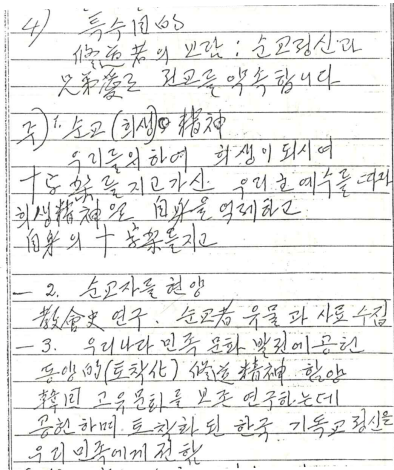 4) 특수目的
修道者의 보람 : 순교정신과
兄弟愛로 전교를 약속합니다
주) 1. 순교(희생)의 精神
우리를 위하여 희생이 되시여
十字架를 지고가신 우리 主 예수를 따라
희생精神으로 自身을 억제하고
自身의 十字架를 지고
— 2. 순교자를 현양
敎會史 연구. 순교者 유물과 사료 수집
— 3. 우리나라 민족 문화 발전에 공헌
동양的(토착化) 修道精神 함양
韓国 고유문화를 보존 연구하는데
공헌하며 토착화 된 한국 기독교 정신을
우리 민족에게 전함